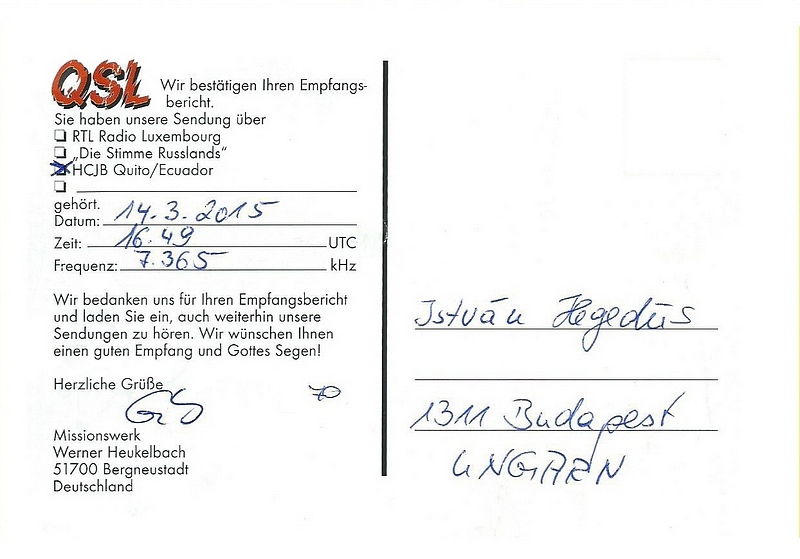 QSL Wir bestätigen Ihren Empfangs-
bericht.
Sie haben unsere Sendung über
RTL Radio Luxembourg
„Die Stimme Russlands“
HCJB Quito/Ecuador
gehört.
Datum: 14.3.2015
Zeit: 16.49 UTC
Frequenz: 7.365 kHz
Wir bedanken uns für Ihren Empfangsbericht
und laden Sie ein, auch weiterhin unsere
Sendungen zu hören. Wir wünschen Ihnen
einen guten Empfang und Gottes Segen!
Herzliche Grüße
Missionswerk
Werner Heukelbach
51700 Bergneustadt
Deutschland
István Hegedüs
1311 Budapest
UNGARN